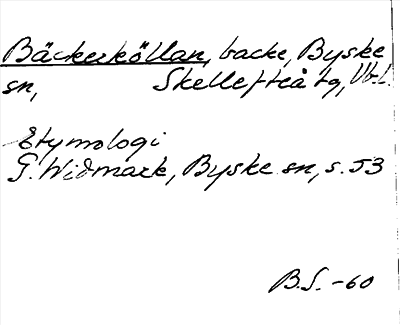 Bäckerköllan, backe, Byske
sn, Skellefteå tg, Vb.l.
Etymologi
G. Widmark, Byske sn, s. 53
B.S. -60